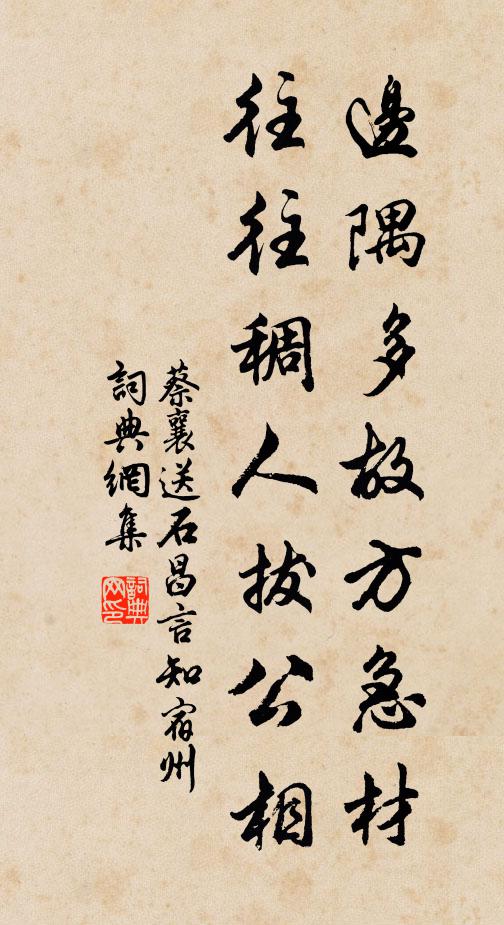 邊隅多故方急材
往往稠人拔公相
蔡襄送石昌言知宿州
詞典網集
詞典
网印